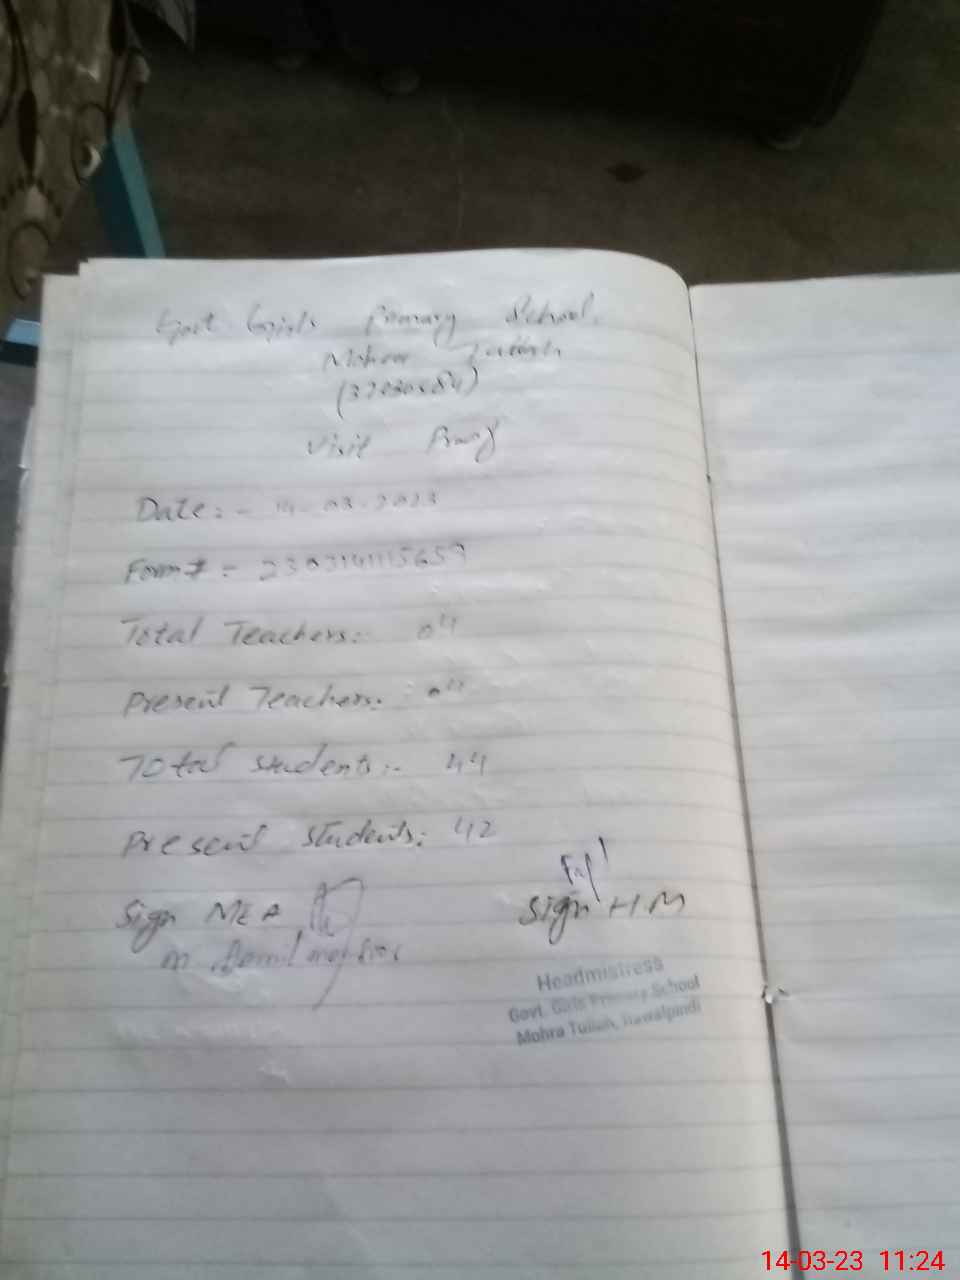 Govt Girls Primary School.
Mohra
Visit Proof
Date:- 14-03-2023
Form# = 2303141115659
Total Teachers:- 04
Present Teachers: 04
Total students:- 44
Present students: 42
Sign MEA
Sign HM
Headmistress
Govt. Girls Primary School
Mohra Rawalpindi
14-03-23 11:24